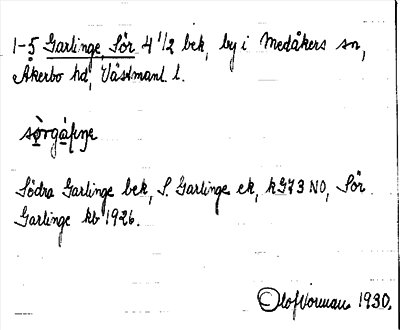 1-5 Garlinge, Sör 4 1/2 bek, by i Medåkers sn,
Åkerbo hd, Västmanl. l.
Södra Garlinge bek, S. Garlinge ek, k973 NO, Sör
Garlinge kb 1926.
Olof Norman 1930.